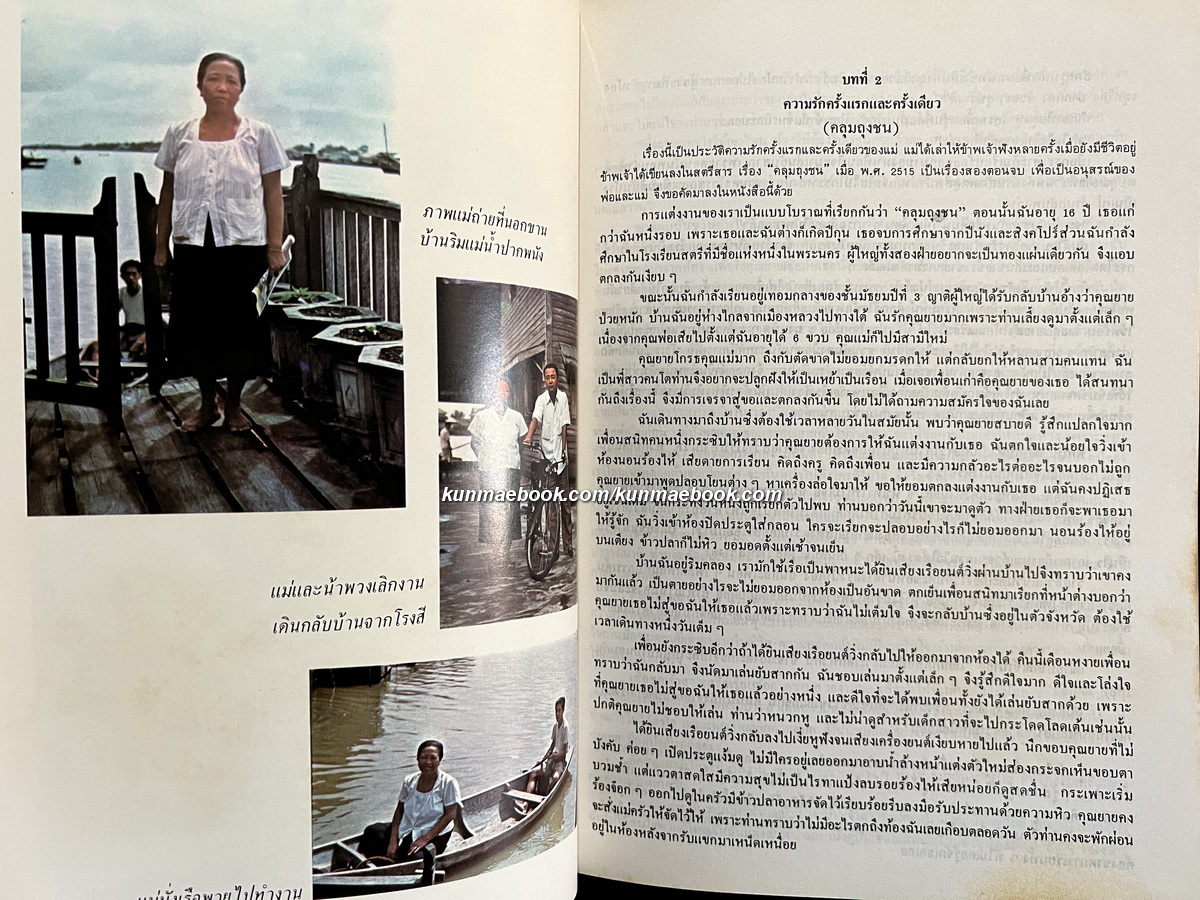 ภาพแม่ถ่ายที่นอกชาน
บ้านริมแม่น้ำปากพนัง
แม่และน้าพวงเลิกงาน
เดินกลับบ้านจากโรงสี
แม่นั่งเรือพายไปทำงาน
kunmaebook.com/kunmaebook.com
บทที่ 2
ความรักครั้งแรกและครั้งเดียว
(คลุมถุงชน)
เรื่องนี้เป็นประวัติความรักครั้งแรกและครั้งเดียวของแม่ แม่ได้เล่าให้ข้าพเจ้าฟังหลายครั้งเมื่อยังมีชีวิตอยู่
ข้าพเจ้าได้เขียนลงในสตรีสาร เรื่อง “คลุมถุงชน” เมื่อ พ.ศ. 2515 เป็นเรื่องสองตอนจบ เพื่อเป็นอนุสรณ์ของ
พ่อและแม่ จึงขอคัดมาลงในหนังสือนี้ด้วย
การแต่งงานของเราเป็นแบบโบราณที่เรียกกันว่า “คลุมถุงชน” ตอนนั้นฉันอายุ 16 ปี เธอแก่
กว่าฉันหนึ่งรอบ เพราะเธอและฉันต่างก็เกิดปีกุน เธอจบการศึกษาจากปีนังและสิงคโปร์ส่วนฉันกำลัง
ศึกษาในโรงเรียนสตรีที่มีชื่อแห่งหนึ่งในพระนคร ผู้ใหญ่ทั้งสองฝ่ายอยากจะเป็นทองแผ่นเดียวกัน จึงแอบ
ตกลงกันเงียบ ๆ
ขณะนั้นฉันกำลังเรียนอยู่เทอมกลางของชั้นมัธยมปีที่ 3 ญาติผู้ใหญ่ได้รับกลับบ้านอ้างว่าคุณยาย
ป่วยหนัก บ้านฉันอยู่ห่างไกลจากเมืองหลวงไปทางใต้ ฉันรักคุณยายมากเพราะท่านเลี้ยงดูมาตั้งแต่เล็ก ๆ
เนื่องจากคุณพ่อเสียไปตั้งแต่ฉันอายุได้ 6 ขวบ คุณแม่ก็ไปมีสามีใหม่
คุณยายโกรธคุณแม่มาก ถึงกับตัดขาดไม่ยอมยกมรดกให้ แต่กลับยกให้หลานสามคนแทน ฉัน
เป็นพี่สาวคนโตท่านจึงอยากจะปลูกฝังให้เป็นเหย้าเป็นเรือน เมื่อเจอเพื่อนเก่าคือคุณยายของเธอ ได้สนทนา
กันถึงเรื่องนี้ จึงมีการเจรจาสู่ขอและตกลงกันขึ้น โดยไม่ได้ถามความสมัครใจของฉันเลย
ฉันเดินทางมาถึงบ้านซึ่งต้องใช้เวลาหลายวันในสมัยนั้น พบว่าคุณยายสบายดี รู้สึกแปลกใจมาก
เพื่อนสนิทคนหนึ่งกระซิบให้ทราบว่าคุณยายต้องการให้ฉันแต่งงานกับเธอ ฉันตกใจและน้อยใจวิ่งเข้า
ห้องนอนร้องไห้ เสียดายการเรียน คิดถึงครู คิดถึงเพื่อน และมีความกลัวอะไรต่ออะไรจนบอกไม่ถูก
คุณยายเข้ามาพูดปลอบโยนต่าง ๆ หาเครื่องล่อใจมาให้ ขอให้ยอมตกลงแต่งงานกับเธอ แต่ฉันคงปฏิเสธ
จนกระทั่งวันหนึ่งถูกเรียกตัวไปพบ ท่านบอกว่าวันนี้เขาจะมาดูตัว ทางฝ่ายเธอก็จะพาเธอมา
ให้รู้จัก ฉันวิ่งเข้าห้องปิดประตูใส่กลอน ใครจะเรียกจะปลอบอย่างไรก็ไม่ยอมออกมา นอนร้องไห้อยู่
บนเตียง ข้าวปลาก็ไม่หิว ยอมอดตั้งแต่เช้าจนเย็น
บ้านฉันอยู่ริมคลอง เรามักใช้เรือเป็นพาหนะได้ยินเสียงเรือยนต์วิ่งผ่านบ้านไปจึงทราบว่าเขาคง
มากันแล้ว เป็นตายอย่างไรจะไม่ยอมออกจากห้องเป็นอันขาด ตกเย็นเพื่อนสนิทมาเรียกที่หน้าต่างบอกว่า
คุณยายเธอไม่สู่ขอฉันให้เธอแล้วเพราะทราบว่าฉันไม่เต็มใจ จึงจะกลับบ้านซึ่งอยู่ในตัวจังหวัด ต้องใช้
เวลาเดินทางหนึ่งวันเต็ม ๆ
เพื่อนยังกระซิบอีกว่าถ้าได้ยินเสียงเรือยนต์วิ่งกลับไปให้ออกมาจากห้องได้ คืนนี้เดือนหงายเพื่อน
ทราบว่าฉันกลับมา จึงนัดมาเล่นยับสากกัน ฉันชอบเล่นมาตั้งแต่เล็ก ๆ จึงรู้สึกดีใจมาก ดีใจและโล่งใจ
ที่คุณยายเธอไม่สู่ขอฉันให้เธอแล้วอย่างหนึ่ง และดีใจที่จะได้พบเพื่อนทั้งยังได้เล่นยับสากด้วย เพราะ
ปกติคุณยายไม่ชอบให้เล่น ท่านว่าหนวกหู และไม่น่าดูสำหรับเด็กสาวที่จะไปกระโดดโลดเต้นเช่นนั้น
ได้ยินเสียงเรือยนต์วิ่งกลับลงไปเงี่ยหูฟังจนเสียงเครื่องยนต์เงียบหายไปแล้ว นึกขอบคุณยายที่ไม่
บังคับ ค่อย ๆ เปิดประตูแง้มดู ไม่มีใครอยู่เลยออกมาอาบน้ำล้างหน้าแต่งตัวใหม่ส่องกระจกเห็นขอบตา
บวมช้ำ แต่แววตาสดใสมีความสุขไม่เป็นไรทาแป้งลบรอยร้องไห้เสียหน่อยก็ดูสดชื่น กระเพาะเริ่ม
ร้องจ๊อก ๆ ออกไปดูในครัวมีข้าวปลาอาหารจัดไว้เรียบร้อยรีบลงมือรับประทานด้วยความหิว คุณยายคง
จะสั่งแม่ครัวให้จัดไว้ให้ เพราะท่านทราบว่าไม่มีอะไรตกถึงท้องฉันเลยเกือบตลอดวัน ตัวท่านคงจะพักผ่อน
อยู่ในห้องหลังจากรับแขกมาเหน็ดเหนื่อย